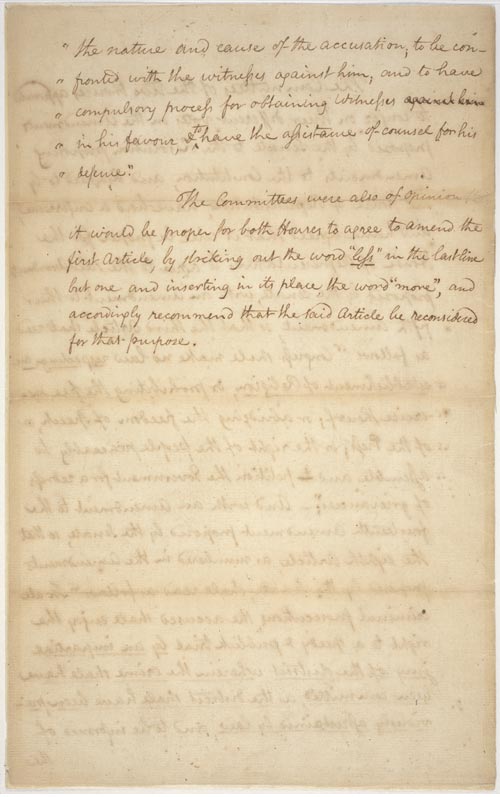 " the nature and cause of the accusation, to be con-
" fronted with the witnesses against him, and to have
" compulsory process for obtaining witnesses against him
" in his favour, & to have the assistance of counsel for his
" defence."
The Committees were also of Opinion that
it would be proper for both Houses to agree to amend the
first Article, by striking out the word "less" in the last line
but one, and inserting in its place, the word "more", and
accordingly recommend that the said Article be reconsidered
for that purpose.